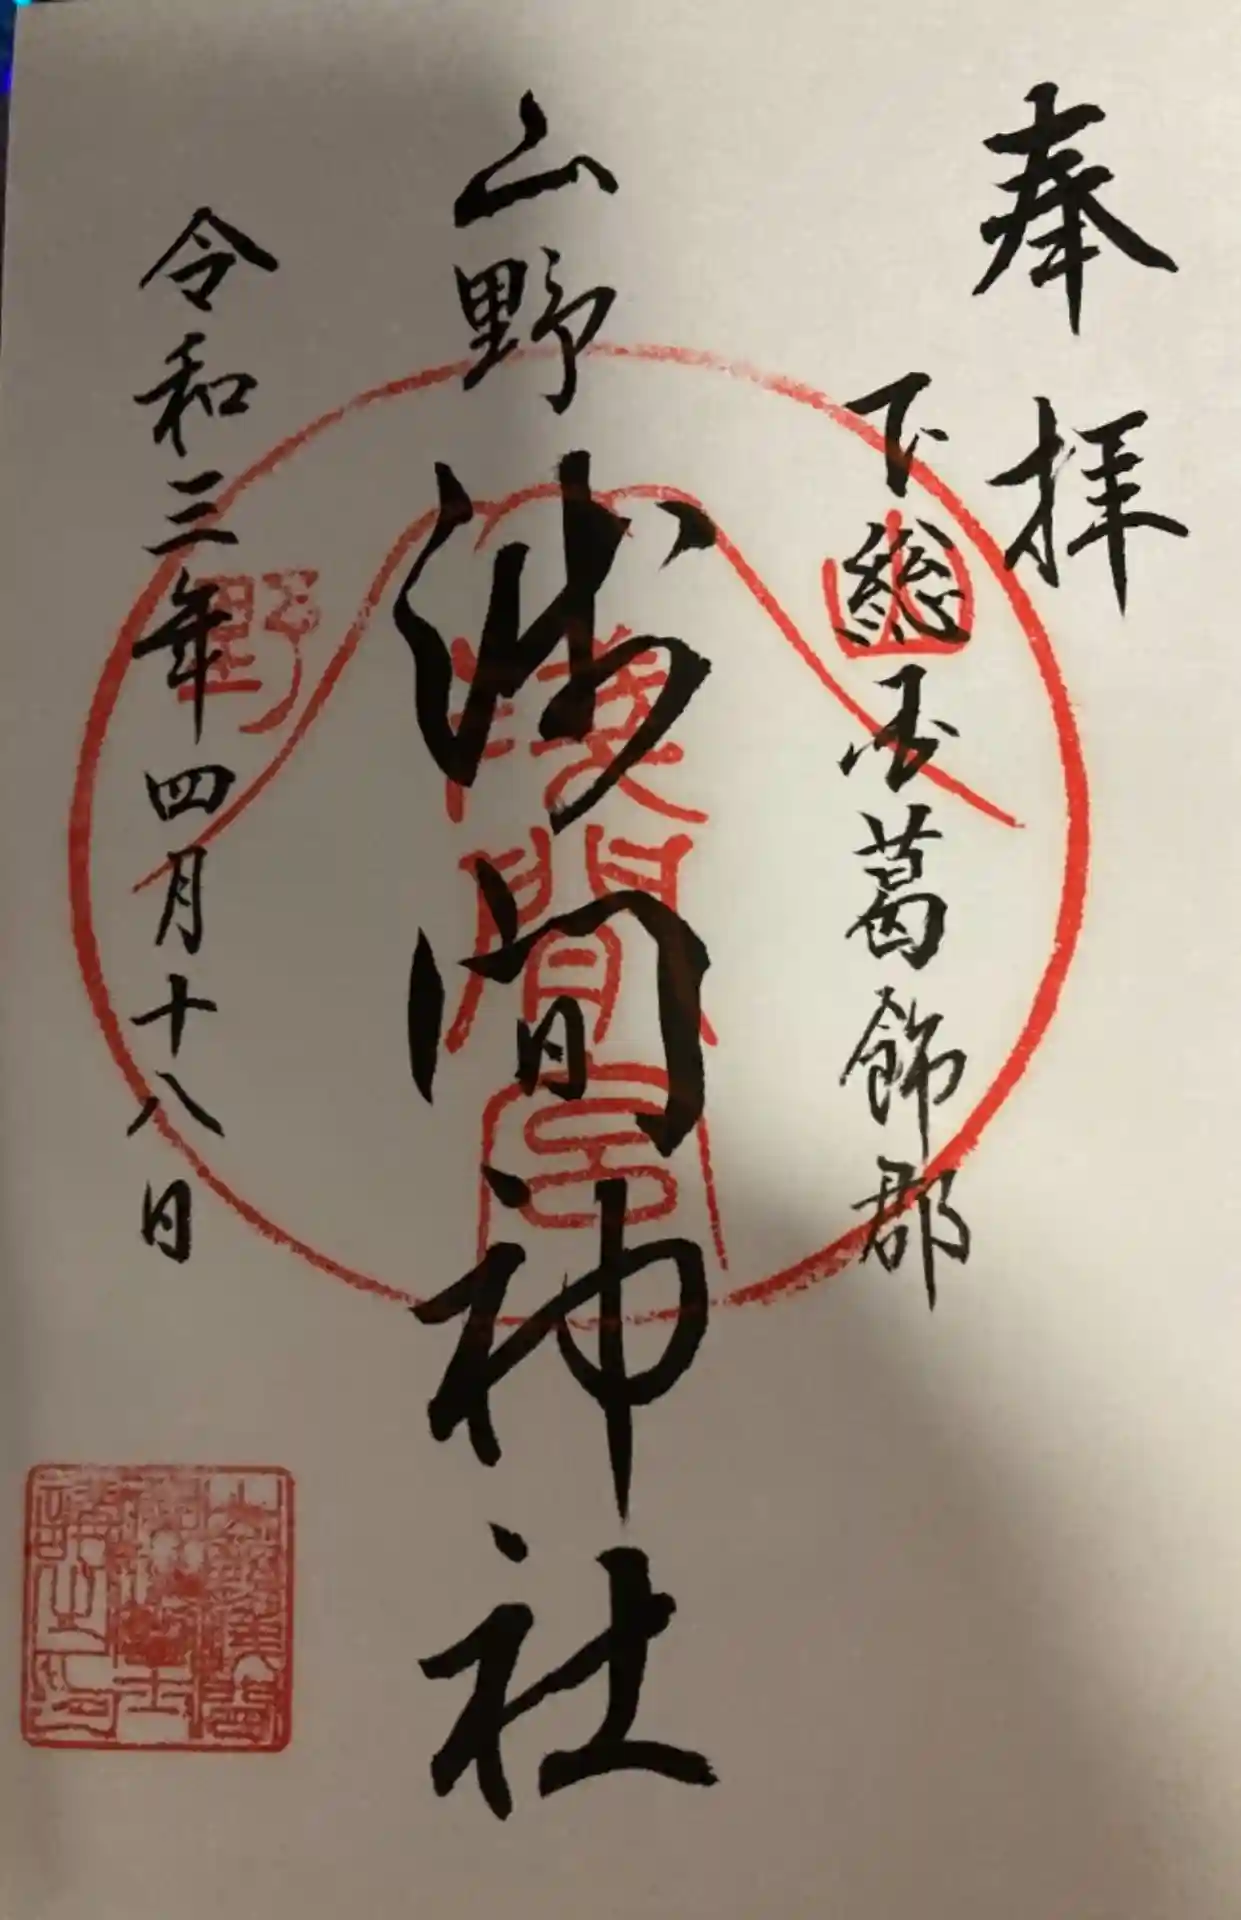 奉拝
下総国葛飾郡
山野
浅間神社
令和三年四月十八日
山野
浅間宮